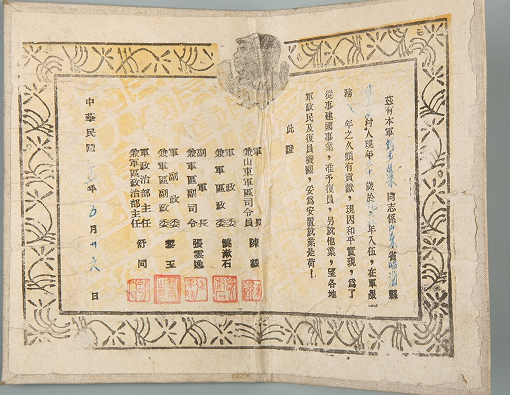 茲有本軍 同志係 省 縣
村人現年 歲於 年入伍，在軍服
務 年之久頗有貢獻，現因和平實現，爲了
從事建國事業，准予復員，另就他業，望各地
軍政民及復員機關，妥爲安置就業是荷！
此證
軍長
兼山東軍區司令員 陳毅
軍政委
兼軍區政委 饒漱石
副軍長
兼軍區副司令 張雲逸
軍副政委
兼軍區副政委 黎玉
軍政治部主任
兼軍區政治部主任 舒同
中華民國 年五月廿六日